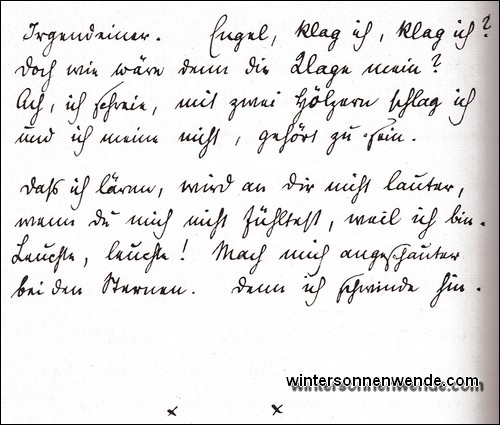 Irgendeiner. Engel, klag ich, klag ich?
Doch wie wäre denn die Klage mein?
Ach, ich schreie, mit zwei Hölzern schlag ich
und ich meine nicht, gehört zu sein.
Daß ich lärme, wird an Dir nicht lauter,
wenn du mich nicht fühltest, weil ich bin.
Leuchte, leuchte! Mach mich angeschauter
bei den Sternen. Denn ich schwinde hin.
wintersonnenwende.com
x x